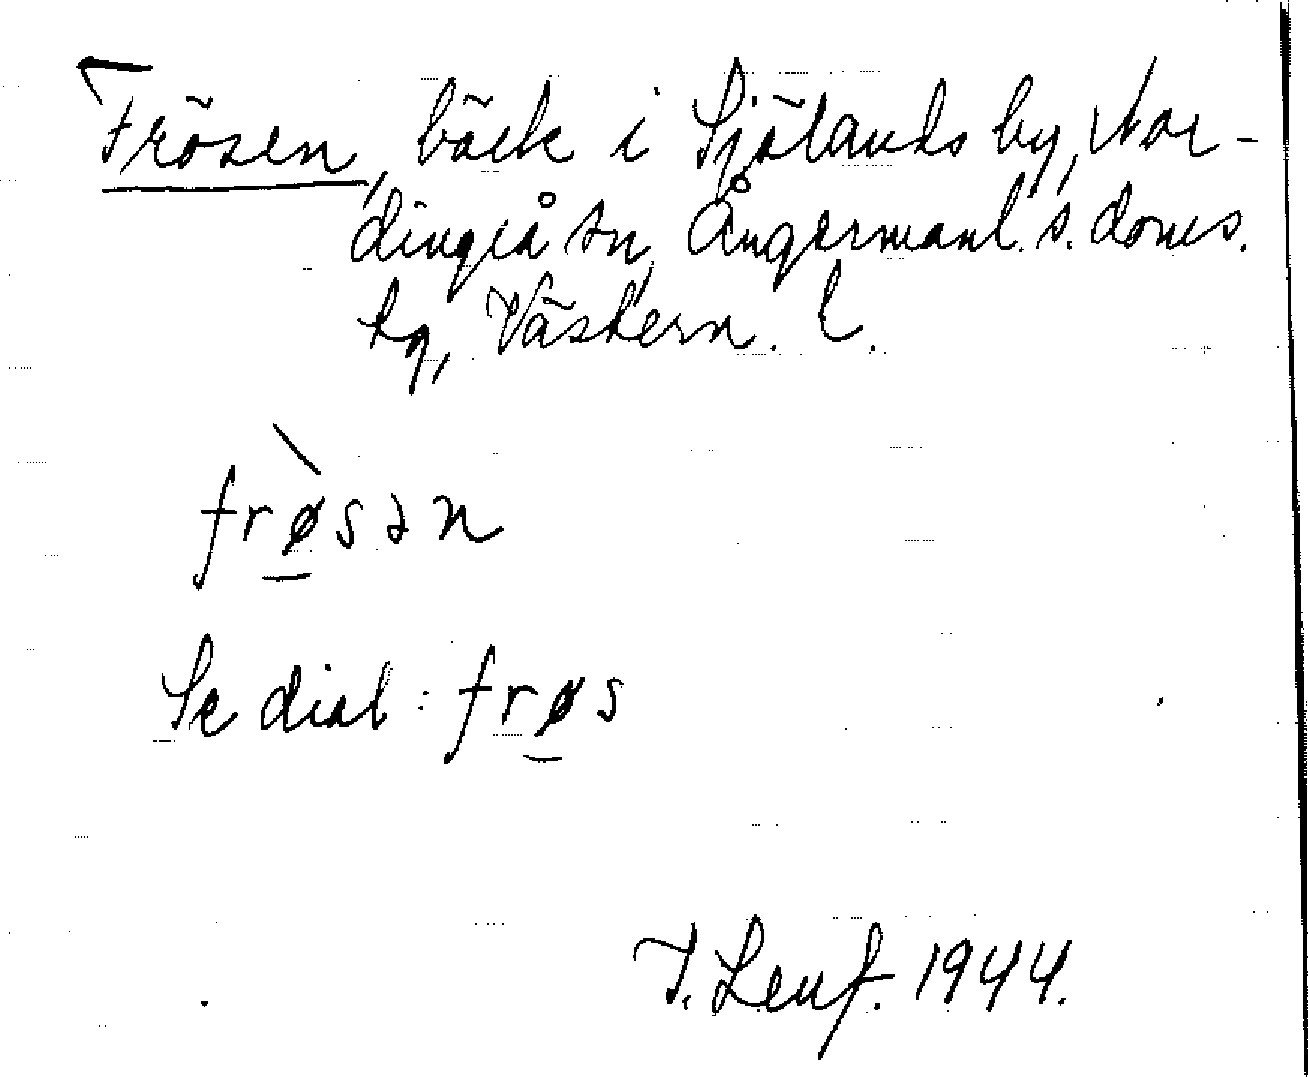 Frösen, bäck i Själands by, Nor-
dingrå sn, Ångermanl. s. doms.
tg, Västern. l.
frø̱̀sən
Se dial: frø̱s
T. Lenf. 1944.